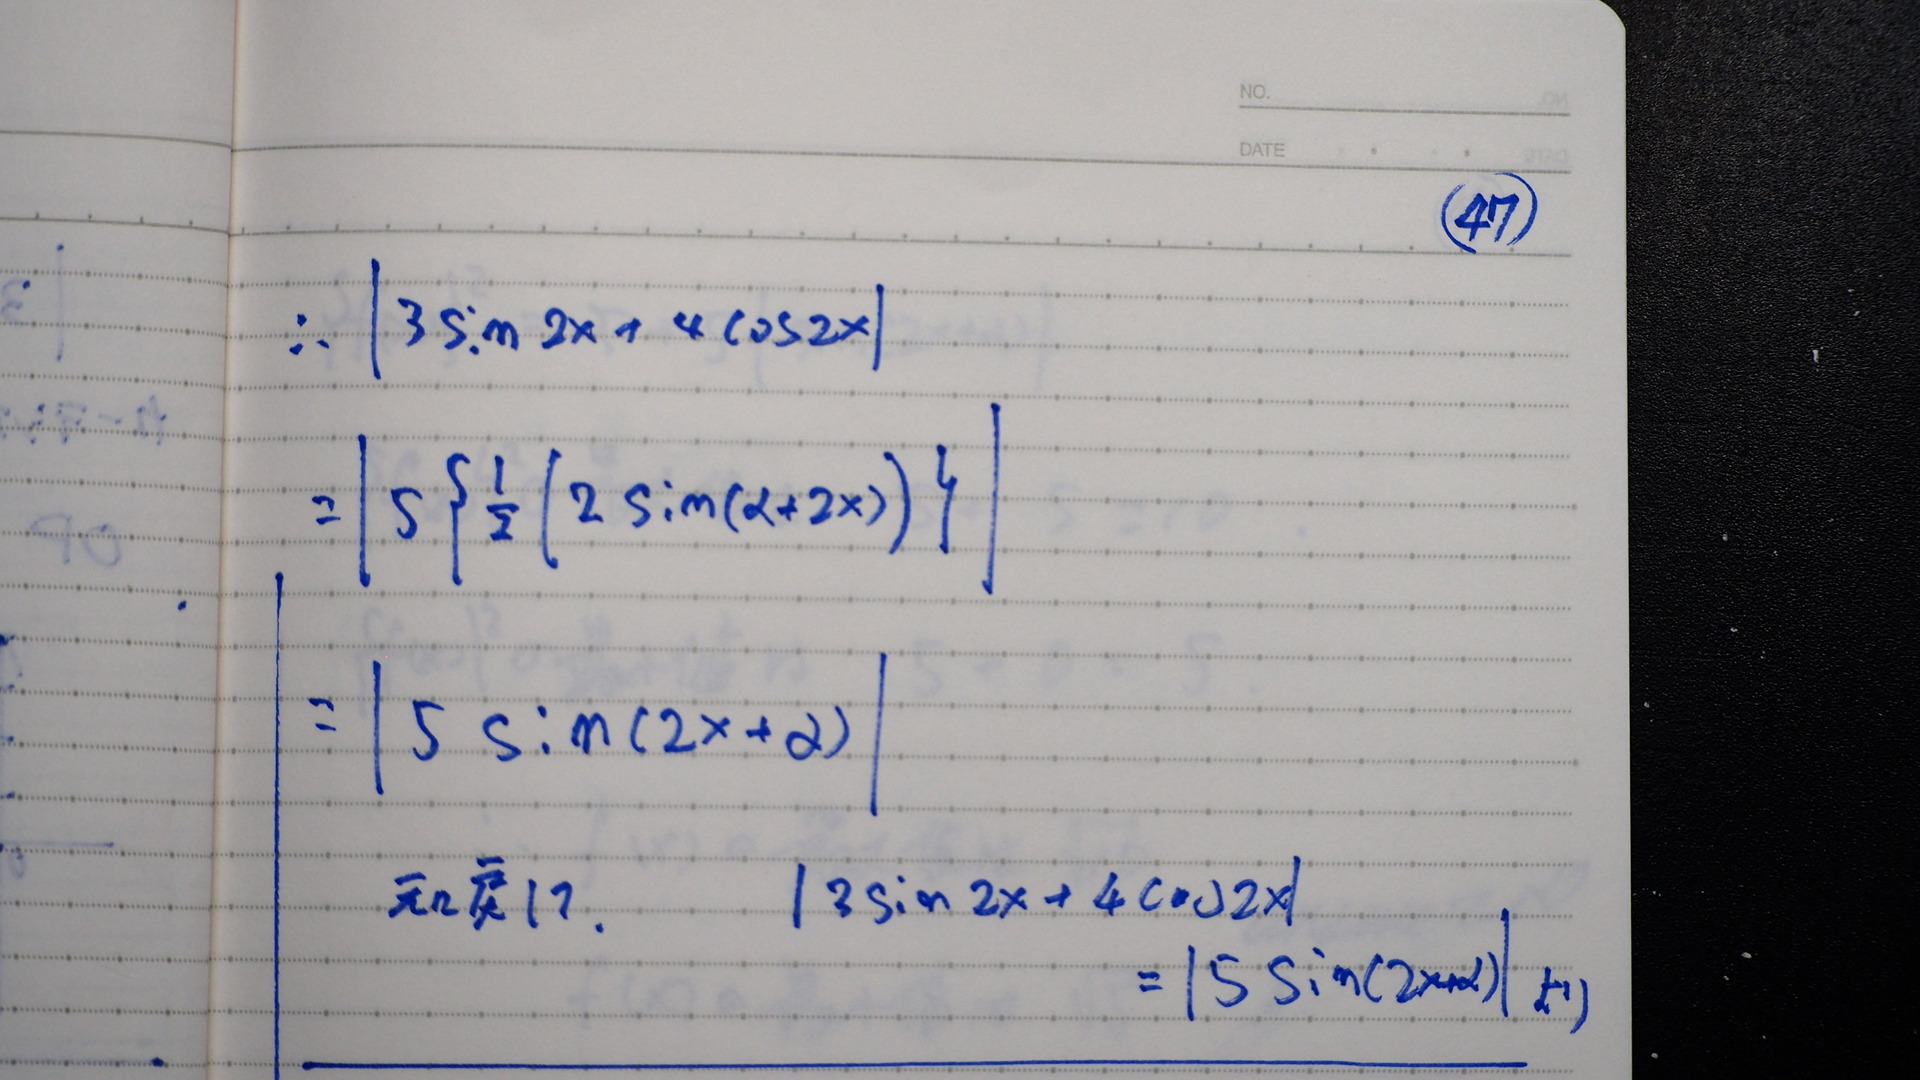 NO.
DATE
(47)
∴ |3 sin 2x + 4 cos 2x|
= |5{1/2(2 sin(α+2x))}|
= |5 sin(2x+α)|
|3 sin 2x + 4 cos 2x|
= |5 sin(2x+α)|